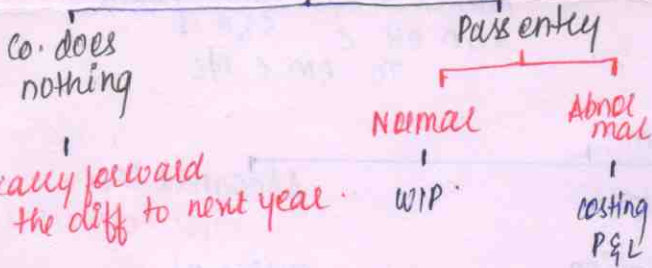 Co. does
nothing
Pass entry
Normal
Abnor
mal
carry forward
the diff to next year.
WIP.
costing
P&L